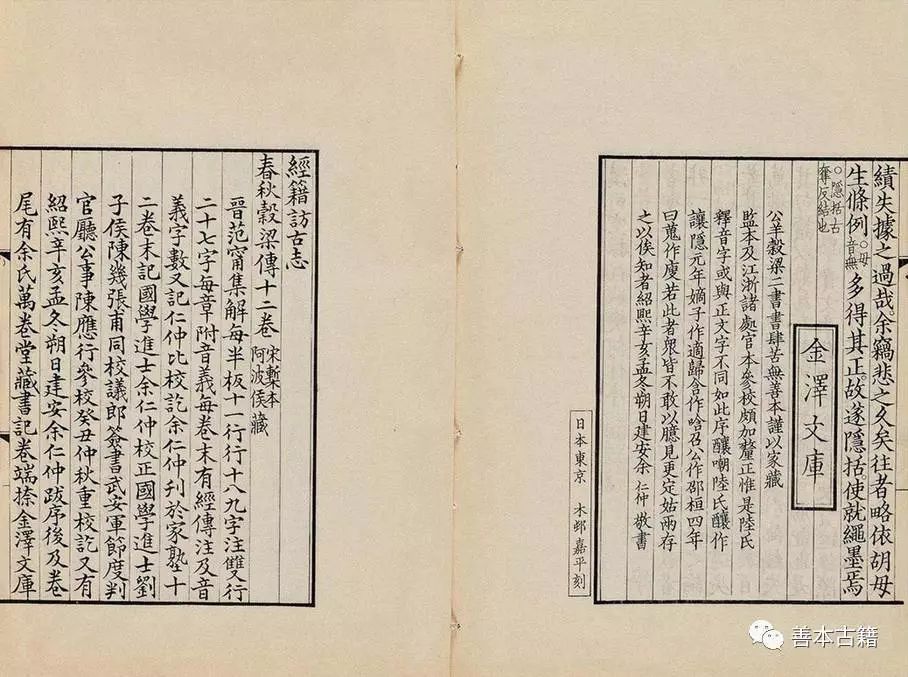 績失據之過哉余竊悲之久矣往者略依胡毋
生條例○毋音無多得其正故遂隱括使就繩墨焉
○隱括古
奪反結也
金澤文庫
公羊穀梁二書書肆苦無善本謹以家藏
監本及江浙諸處官本參校頗加釐正惟是陸氏
釋音字或與正文字不同如此序釀嘲陸氏釀作
讓隱元年嫡子作適歸含作唅召公作邵桓四年
曰蒐作廋若此者眾皆不敢以臆見更定姑兩存
之以俟知者紹熙辛亥孟冬朔日建安余仁仲敬書
日本東京 木邨嘉平刻
經籍訪古志
春秋穀梁傳十二卷 宋槧本 阿波侯藏
晉范甯集解每半板十一行行十八九字注雙行
二十七字每章附音義每卷末有經傳注及音
義字數又記仁仲比校訖余仁仲刊於家塾十
二卷末記國學進士余仁仲校正國學進士劉
子庚陳幾張甫同校議郎簽書武安軍節度判
官廳公事陳應行參校癸丑仲秋重校訖又有
紹熙辛亥孟冬朔日建安余仁仲跋序後及卷
尾有余氏萬卷堂藏書記卷端捺金澤文庫
善本古籍